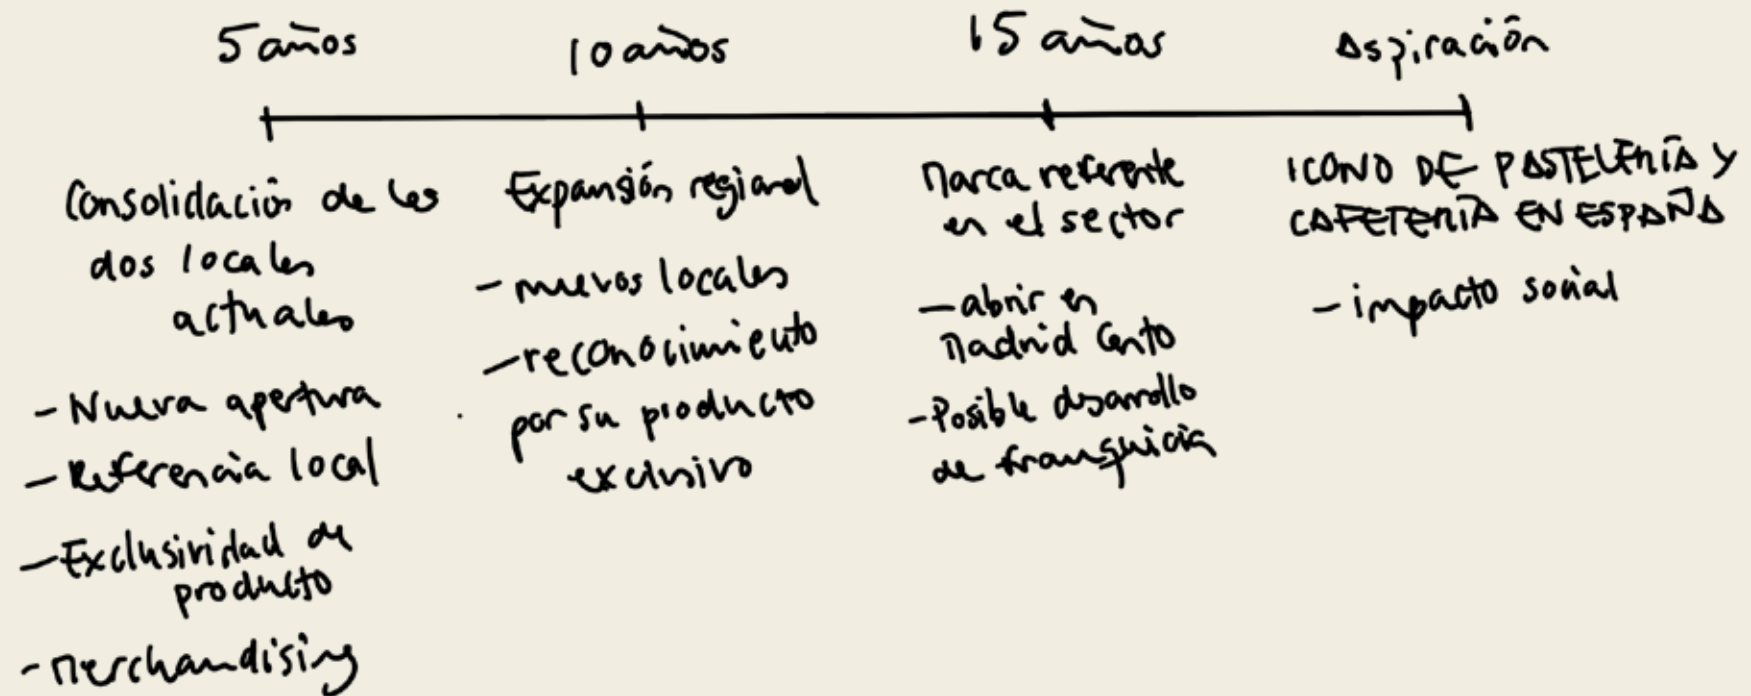 5 años
10 años
15 años
Aspiración
Consolidación de los
dos locales
actuales
- Nueva apertura
- Referencia local
- Exclusividad de
producto
- Merchandising
Expansión regional
- nuevos locales
- reconocimiento
por su producto
exclusivo
Marca referente
en el sector
- abrir en
Madrid Centro
- Posible desarrollo
de franquicia
ICONO DE PASTELERÍA Y
CAFETERÍA EN ESPAÑA
- impacto social